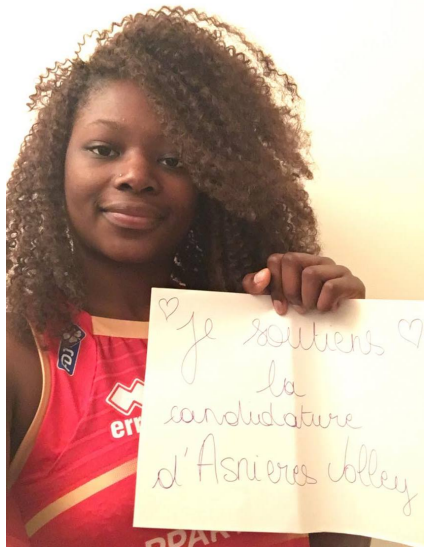 je soutiens
la
candudature
d'Asnieres Volley